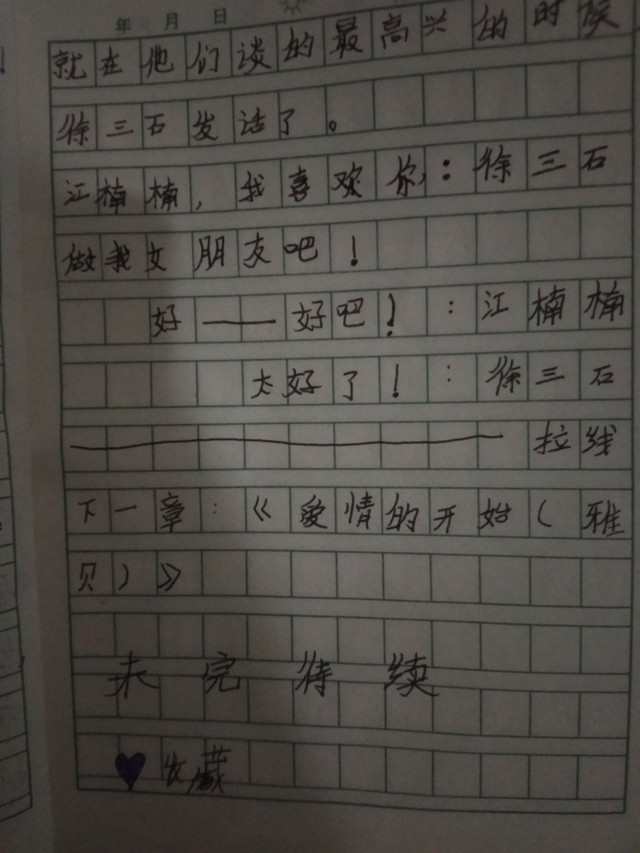 年 月 日
就在他们谈的最高兴的时候
徐三石发话了。
江楠楠，我喜欢你：徐三石
做我女朋友吧！
好——好吧！：江楠楠
太好了！：徐三石
——————————拉线
下一章：《爱情的开始（雅
贝）》
未完待续
♥收藏